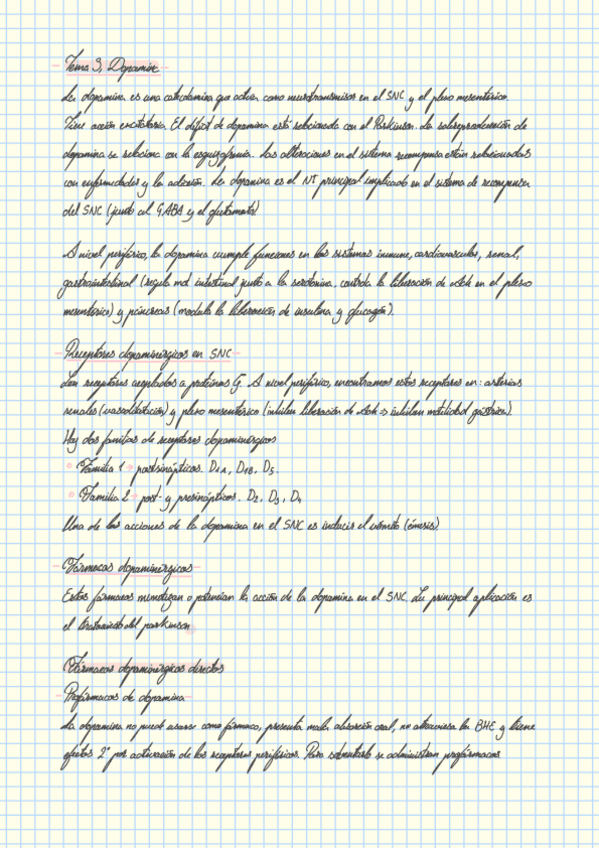 Tema 3, Dopamina
La dopamina es una catecolamina que actúa como neurotransmisor en el SNC y el plexo mesentérico.
Tiene acción excitatoria. El déficit de dopamina está relacionado con el Parkinson. La sobreproducción de
dopamina se relaciona con la esquizofrenia. Las alteraciones en el sistema recompensa están relacionadas
con enfermedades y la adicción. La dopamina es el NT principal implicado en el sistema de recompensa
del SNC (junto al GABA y el glutamato)
A nivel periférico, la dopamina cumple funciones en los sistemas inmune, cardiovascular, renal,
gastrointestinal (regula mot intestinal junto a la serotonina, controla la liberación de Ach en el plexo
mesentérico) y páncreas (modula la liberación de insulina y glucagón).
Receptores dopaminérgicos en SNC
Son receptores acoplados a proteínas G. A nivel periférico, encontramos estos receptores en: arterias
renales (vasodilatación) y plexo mesentérico (inhiben liberación de Ach => inhiben motilidad gástrica).
Hay dos familias de receptores dopaminérgicos
Familia 1 → postsinápticos. D1A, D1B, D5.
Familia 2 → post- y presinápticos. D2, D3, D4
Una de las acciones de la dopamina en el SNC es inducir el vómito (émesis)
Fármacos dopaminérgicos
Estos fármacos mimetizan o potencian la acción de la dopamina en el SNC. La principal aplicación es
el tratamiento del parkinson
Fármacos dopaminérgicos directos
Profármacos de dopamina
La dopamina no puede usarse como fármaco, presenta mala absorción oral, no atraviesa la BHE y tiene
efectos 2º por activación de los receptores periféricos. Para solventarlo se administran profármacos